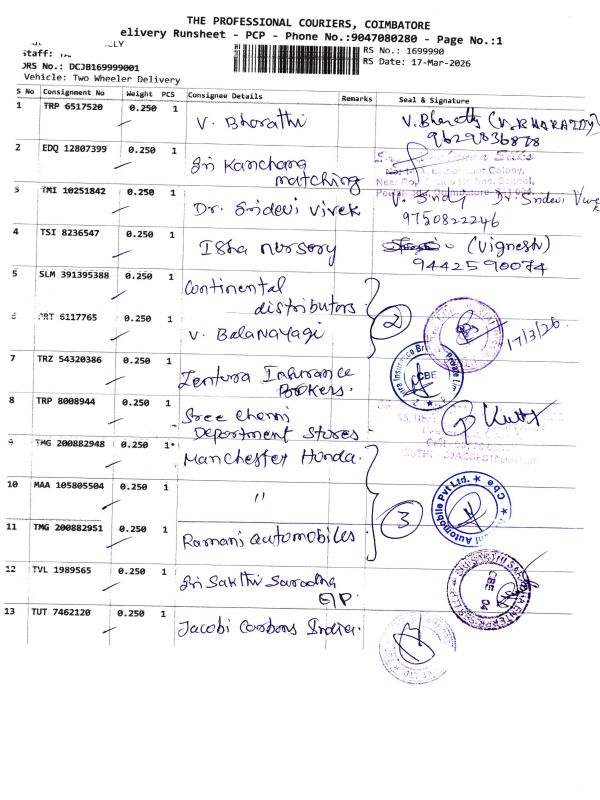 THE PROFESSIONAL COURIERS, COIMBATORE
elivery Runsheet - PCP - Phone No.:9047080280 - Page No.:1
RS No.: 1699990
Staff:
DRS No.: DCJB169999001
RS Date: 17-Mar-2026
Vehicle: Two Wheeler Delivery
S No Consignment No Weight PCS Consignee Details Remarks Seal & Signature
1 TRP 6517520 0.250 1 V. Bharathi V. Bharathi
9629836878
2 EDQ 12807399 0.250 1 Sri Kanchana
matching
3 TMI 10251842 0.250 1 Dr. Sridevi Vivek Dr. Sridevi Vivek
9750822246
4 TSI 8236547 0.250 1 Isha nursory (Vignesh)
9442590074
5 SLM 391395388 0.250 1 Continental
distributors
6 PRT 6117765 0.250 1 V. Balanayagi 2 17/3/26.
7 TRZ 54320386 0.250 1 Zentura Insurance
Brokers.
CBE
8 TRP 8008944 0.250 1 Sree Chenni
Department Stores.
9 TMG 200882948 0.250 1 Manchester Honda.
10 MAA 105805504 0.250 1 "
3
Automobile Pvt Ltd. Cbe
11 TMG 200882951 0.250 1 Ramani automobiles.
12 TVL 1989565 0.250 1 Sri Sakthi Saradha
E/P.
CBE 04
13 TUT 7462120 0.250 1 Jacobi Carbons India.